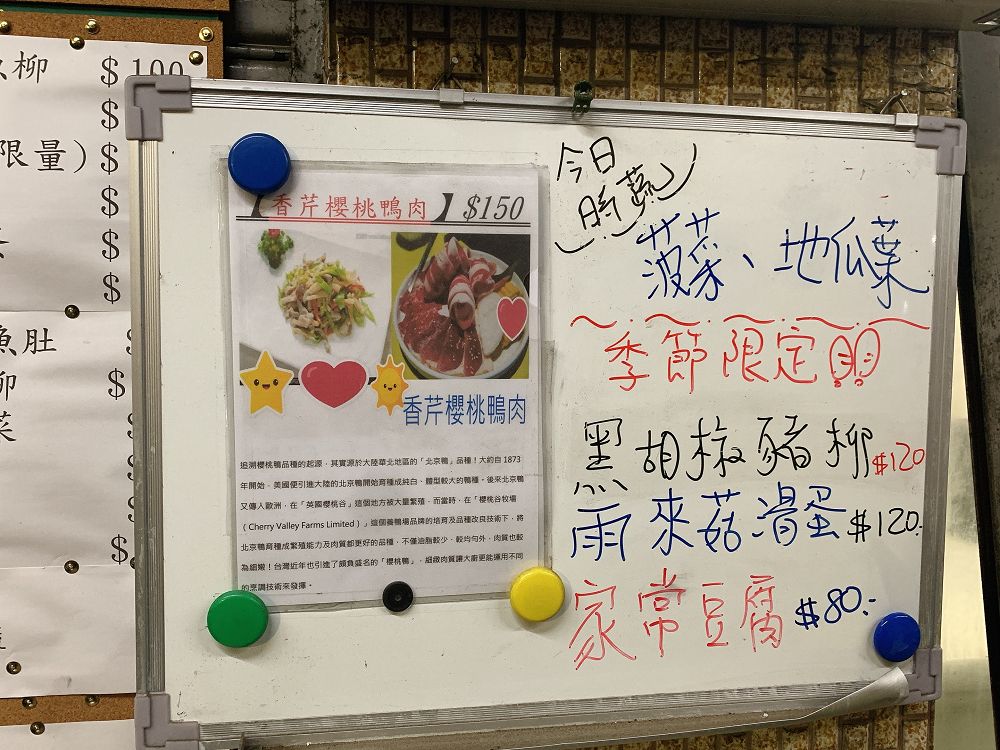 柳 $100
$
限量) $
$
$
$
魚肚
柳 $
菜
$
香芹櫻桃鴨肉 $150
香芹櫻桃鴨肉
追溯櫻桃鴨品種的起源，其實源於大陸華北地區的「北京鴨」品種！大約自1873
年開始，美國便引進大陸的北京鴨開始育種成純白、體型較大的鴨種，後來北京鴨
又傳入歐洲，在「英國櫻桃谷」這個地方被大量繁殖，而當時，在「櫻桃谷牧場
（Cherry Valley Farms Limited）」這個養鴨場品牌的培育及品種改良技術下，將
北京鴨育種成繁殖能力及肉質都更好的品種，不僅油脂較少、較均勻外，肉質也較
為細嫩！台灣近年也引進了頗負盛名的「櫻桃鴨」，細緻肉質讓大廚更能運用不同
的烹調技術來發揮。
今日
時蔬
菠菜、地瓜葉
季節限定
黑胡椒豬柳 $120
雨來菇滑蛋 $120.-
家常豆腐 $80.-